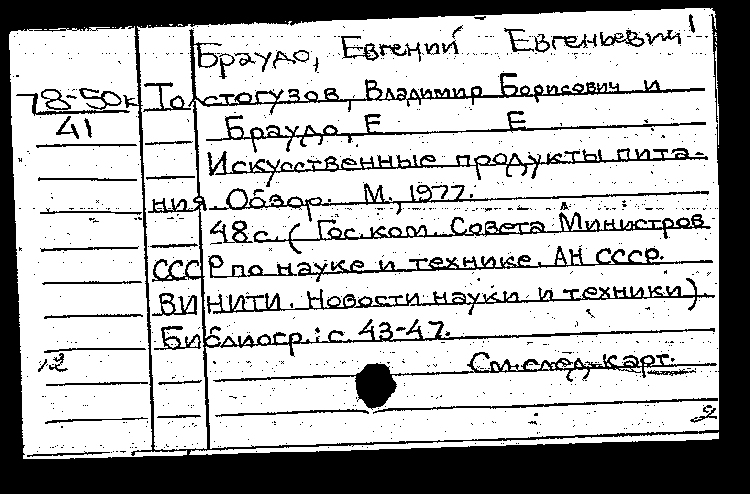 Браудо, Евгений Евгеньевич 1
78-50к Толстогузов, Владимир Борисович и
41 Браудо, Е Е
Искусственные продукты пита-
ния. Обзор. М., 1977.
48 с. (Гос. ком. Совета Министров
СССР по науке и технике. АН СССР.
ВИНИТИ. Новости науки и техники).
Библиогр.: с. 43-47.
12 См. след. карт.
2